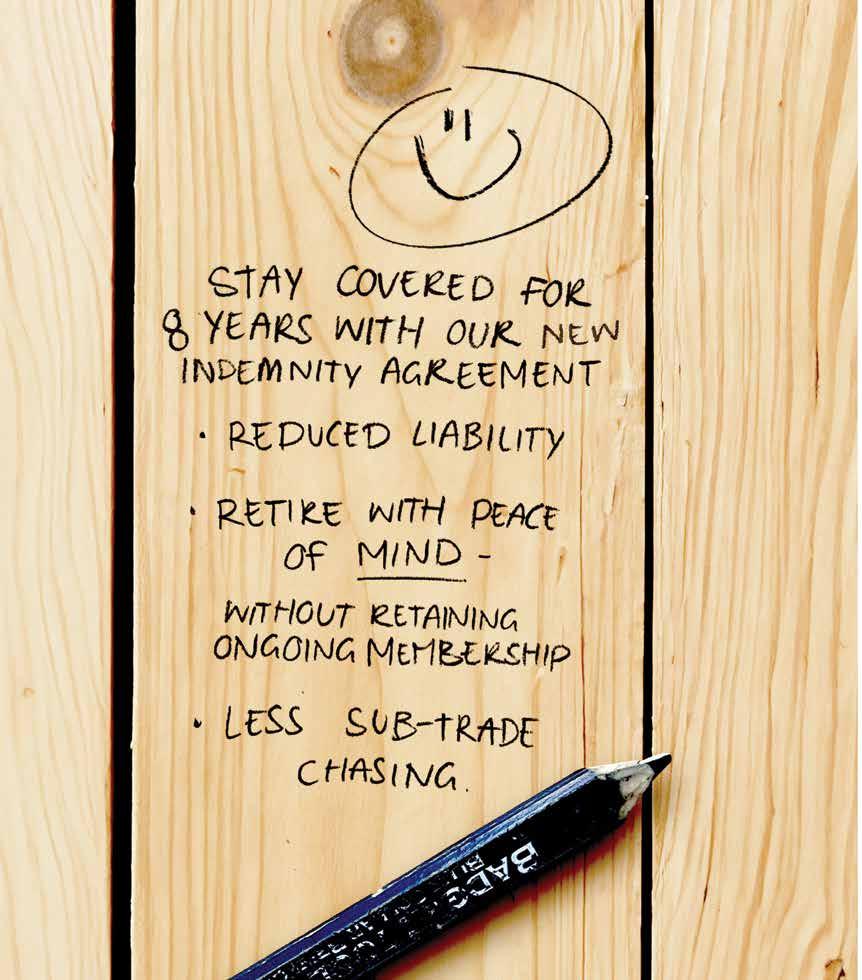 STAY COVERED FOR
8 YEARS WITH OUR NEW
INDEMNITY AGREEMENT
· REDUCED LIABILITY
· RETIRE WITH PEACE
OF MIND -
WITHOUT RETAINING
ONGOING MEMBERSHIP
· LESS SUB-TRADE
CHASING.